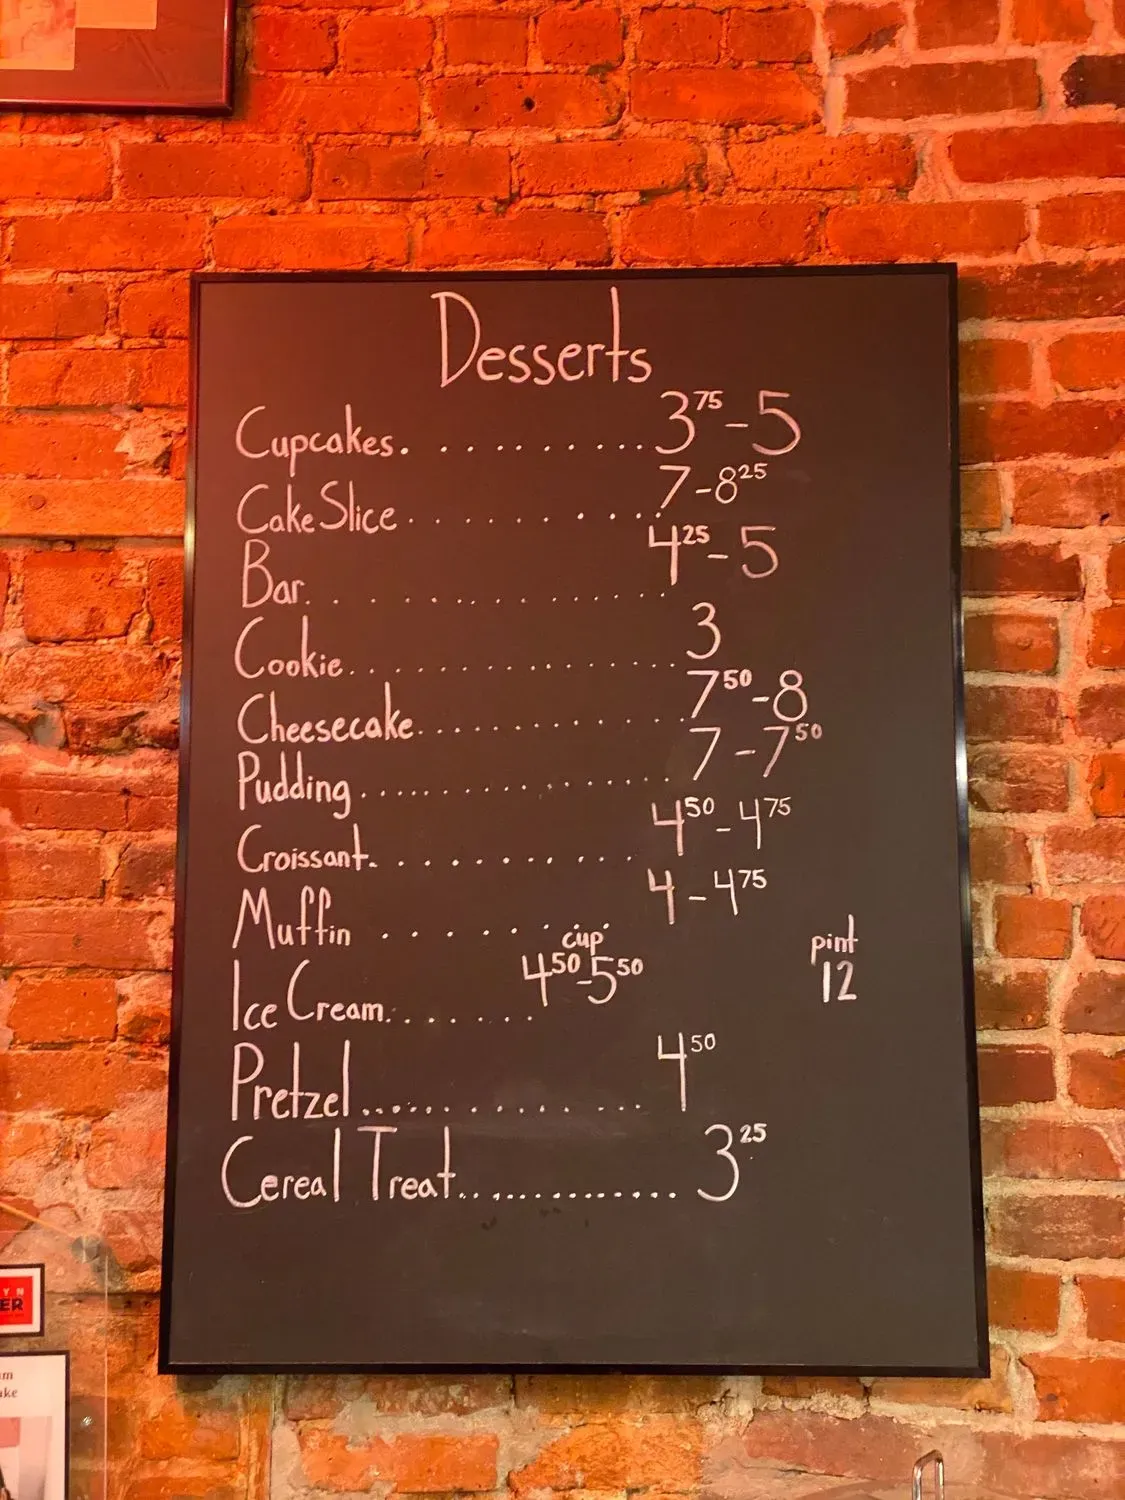 Desserts
Cupcakes. . . . . . . . . . 3 75 - 5
Cake Slice . . . . . . . . . 7 - 8 25
Bar. . . . . . . . . . . . . . . 4 25 - 5
Cookie. . . . . . . . . . . . . . . 3
Cheesecake. . . . . . . . . . . . . 7 50 - 8
Pudding . . . . . . . . . . . . . . . 7 - 7 50
Croissant. . . . . . . . . . . 4 50 - 4 75
Muffin . . . . . . . . 4 - 4 75
cup pint
Ice Cream. . . . . . . 4 50 - 5 50 12
Pretzel . . . . . . . . . . . . . 4 50
Cereal Treat. . . . . . . . . . . . . . 3 25
YN
ER